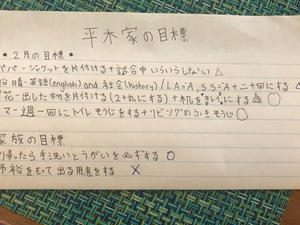 平木家の目標
• 2月の目標 •
パパー ジャケットを片付ける + 試合中 いらいらしない △
晴-英語(english) and 社会(history) / LA=A, S.S=A + 二十回にする △
花-出した物を片付ける(2ヶ丸にする) + 机をきれいにする △ ○
マー 週一回にトイレそうじをする + リビングのふきそうじ ○
家族の目標
帰ったら手洗いとうがいを必ずする ○
裕をもって出る用意をする ×